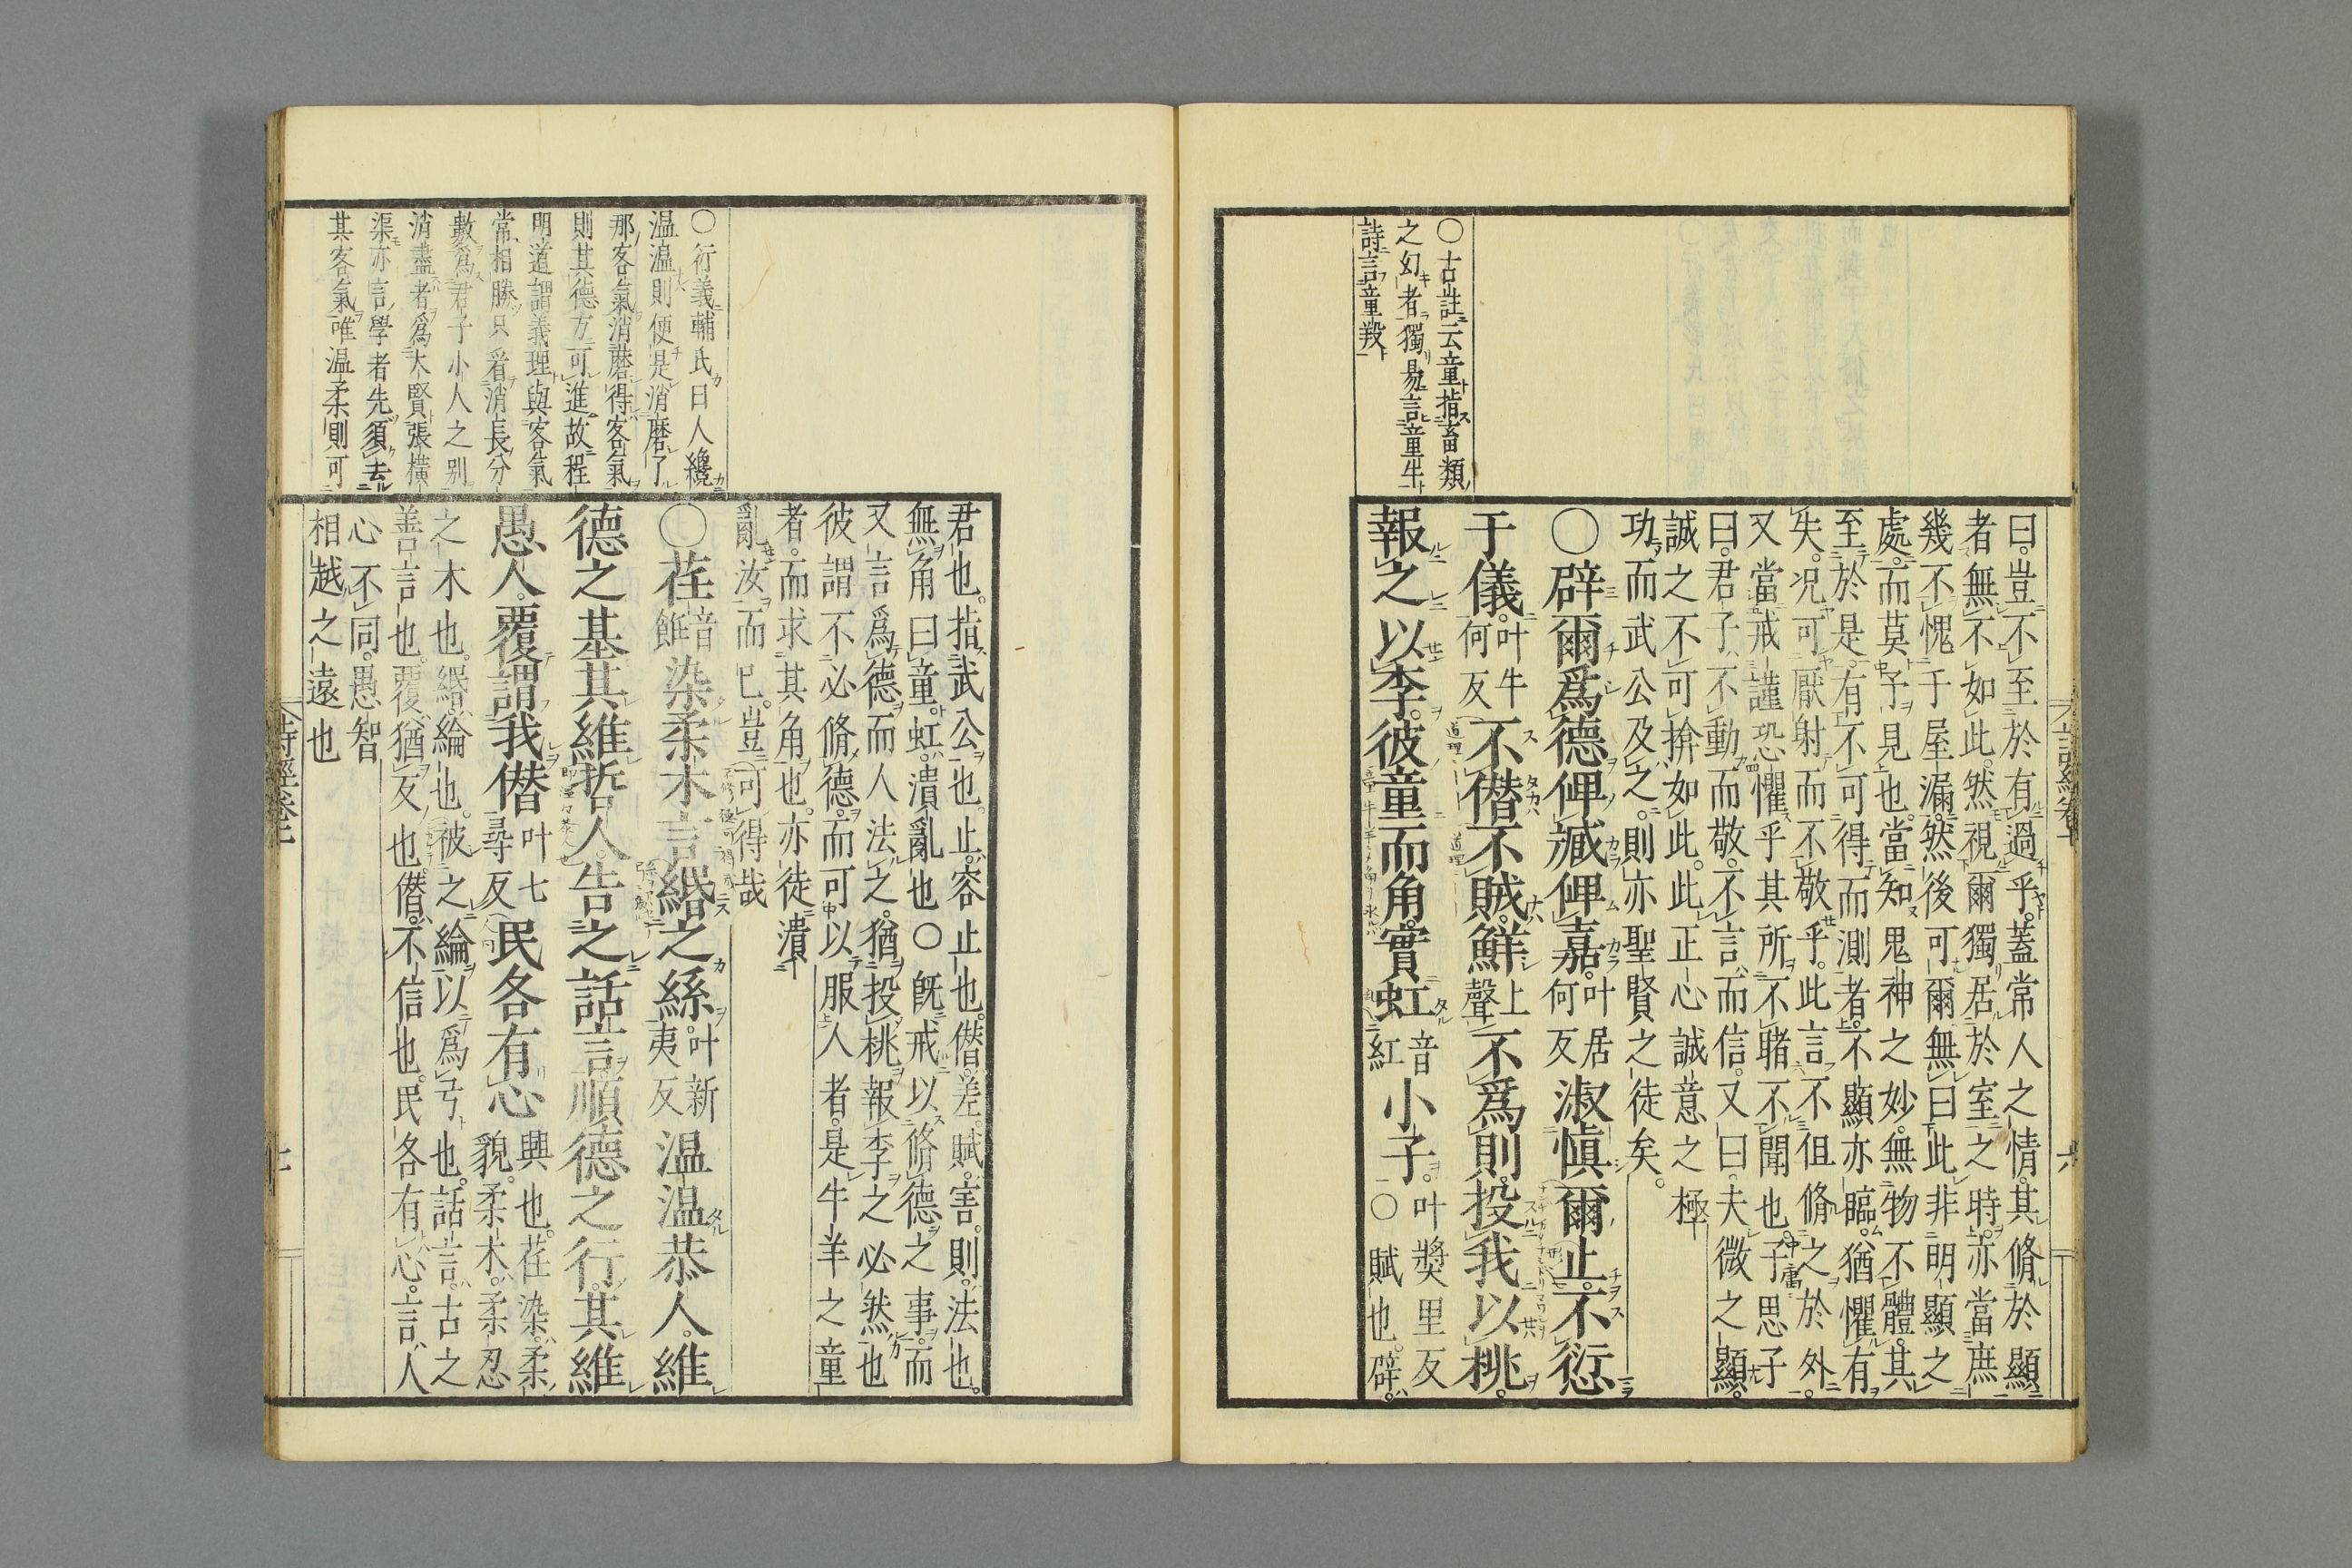 ○古註云童指畜類
之幻者獨易言童牛
詩言童羖
曰豈不至於有過乎蓋常人之情其脩於顯
者無不如此然視爾獨居於室之時亦當庶
幾不愧于屋漏然後可爾無曰此非明顯之
處而莫予見也當知鬼神之妙無物不體其
至於是有不可得而測者不顯亦臨猶懼有
失況可厭射而不敬乎此言不但脩之於外
又當戒謹恐懼乎其所不睹不聞也子思子
曰君子不動而敬不言而信又曰夫微之顯
誠之不可揜如此此正心誠意之極
功而武公及之則亦聖賢之徒矣
○辟爾爲德俾臧俾嘉叶居何反淑愼爾止不愆
于儀叶牛何反不僭不賊鮮上聲不爲則投我以桃
報之以李彼童而角實虹音紅小子叶奬里反○賦也辟
君也指武公也止容止也僭差賊害則法也
無角曰童虹潰亂也○旣戒以脩德之事而
又言爲德而人法之猶投桃報李之必然也
彼謂不必脩德而可以服人者是牛羊之童
者而求其角也亦徒潰
亂汝而已豈可得哉
○荏音飪染柔木言緡之絲叶新夷反温温恭人維
德之基其維哲人告之話言順德之行其維
愚人覆謂我僭叶七尋反民各有心興也荏染柔貌柔木柔忍
之木也緡綸也被之綸以爲弓也話言古之
善言也覆猶反也僭不信也民各有心言人
心不同愚智
相越之遠也
○衍義輔氏曰人纔
温温則便是消磨了
那客氣消磨得客氣
則其德方可進故程
明道謂義理與客氣
常相勝只看消長分
數爲君子小人之别
消盡者爲大賢張横
渠亦言學者先須去
其客氣唯温柔則可
詩經卷七
六
七